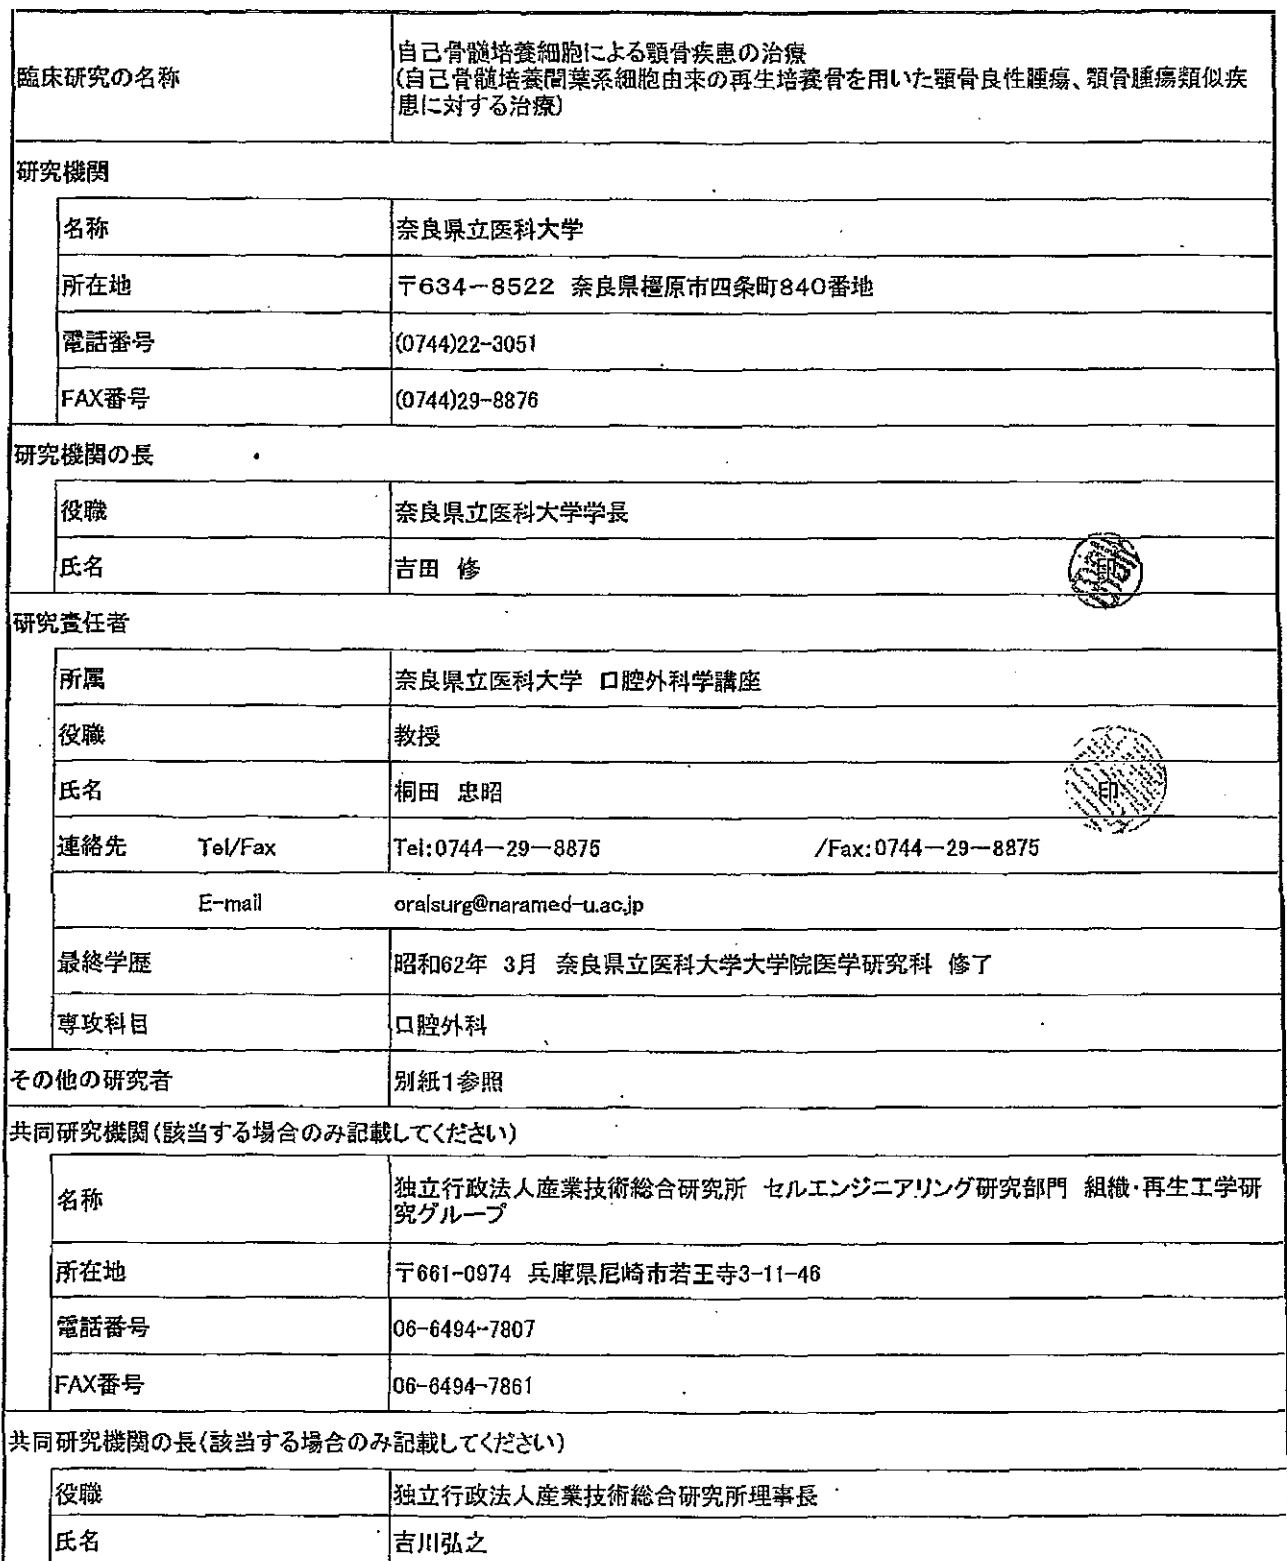 臨床研究の名称
自己骨髄培養細胞による顎骨疾患の治療
(自己骨髄培養間葉系細胞由来の再生培養骨を用いた顎骨良性腫瘍、顎骨腫瘍類似疾
患に対する治療)
研究機関
名称 奈良県立医科大学
所在地 〒634-8522 奈良県橿原市四条町840番地
電話番号 (0744)22-3051
FAX番号 (0744)29-8876
研究機関の長
役職 奈良県立医科大学学長
氏名 吉田 修 印
研究責任者
所属 奈良県立医科大学 口腔外科学講座
役職 教授
氏名 桐田 忠昭 印
連絡先 Tel/Fax Tel:0744-29-8875 /Fax:0744-29-8875
E-mail oralsurg@naramed-u.ac.jp
最終学歴 昭和62年 3月 奈良県立医科大学大学院医学研究科 修了
専攻科目 口腔外科
その他の研究者 別紙1参照
共同研究機関(該当する場合のみ記載してください)
名称
独立行政法人産業技術総合研究所 セルエンジニアリング研究部門 組織・再生工学研
究グループ
所在地 〒661-0974 兵庫県尼崎市若王寺3-11-46
電話番号 06-6494-7807
FAX番号 06-6494-7861
共同研究機関の長(該当する場合のみ記載してください)
役職 独立行政法人産業技術総合研究所理事長
氏名 吉川弘之